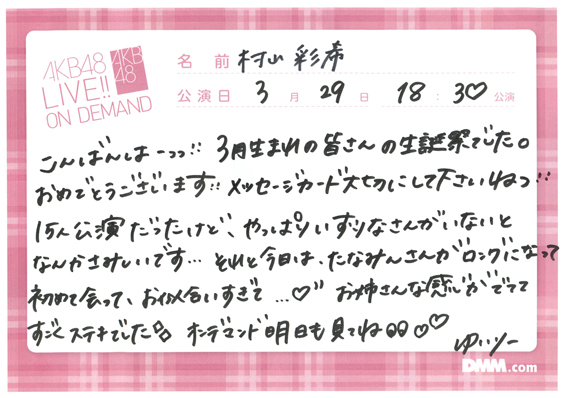 AKB48
LIVE!!
ON DEMAND
AKB
48
名前 村山 彩希
公演日 3月 29日 18:30 公演
こんばんはーっっ!! 3月生まれの皆さんの生誕祭でした。
おめでとうございます!! メッセージカード大切にして下さいねっ!!
15人公演だったけど、やっぱりいずりなさんがいないと
なんかさみしいです… それと今日は、たなみんさんがロングになって
初めて会って、お似合いすぎて…♡ お姉さんな感じがでてて
すごくステキでした オンデマンド明日も見てね♡♡
ゆいりー
DMM.com